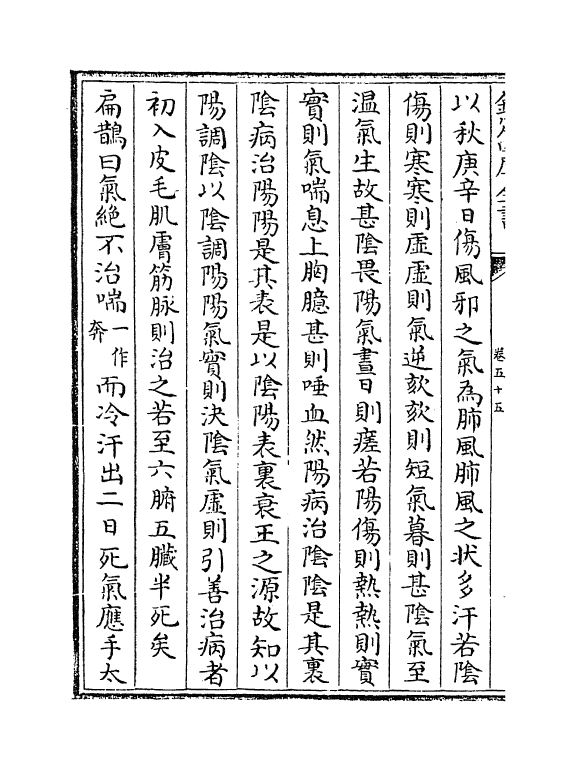 卷五十五
以秋庚辛日傷風邪之氣為肺風肺風之狀多汗若陰
傷則寒寒則虛虛則氣逆欬欬則短氣暮則甚陰氣至
温氣生故甚陰畏陽氣晝日則瘥若陽傷則熱熱則實
實則氣喘息上胸臆甚則唾血然陽病治陰陰是其裏
陰病治陽陽是其表是以陰陽表裏衰王之源故知以
陽調陰以陰調陽陽氣實則決陰氣虛則引善治病者
初入皮毛肌膚筋脉則治之若至六腑五臟半死矣
扁鵲曰氣絶不治喘一作奔而冷汗出二日死氣應手太